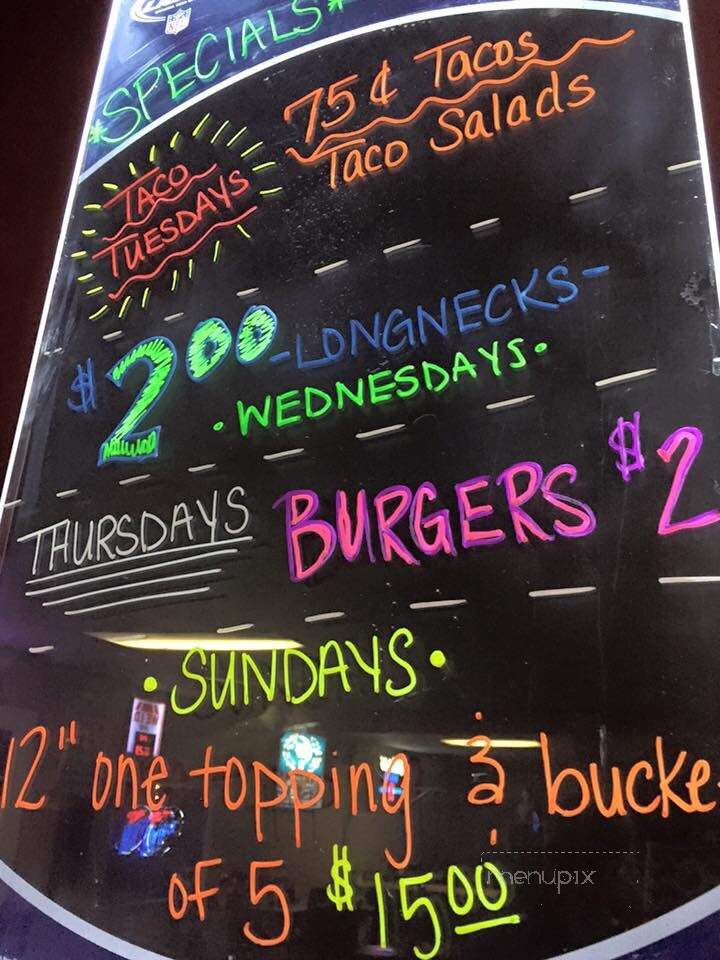 NFL
*SPECIALS*
75¢ Tacos
Taco Salads
TACO
TUESDAYS
$2.00 -LONGNECKS-
• WEDNESDAYS •
THURSDAYS BURGERS $2
• SUNDAYS •
12" one topping & bucke
of 5 $15.00
menupix